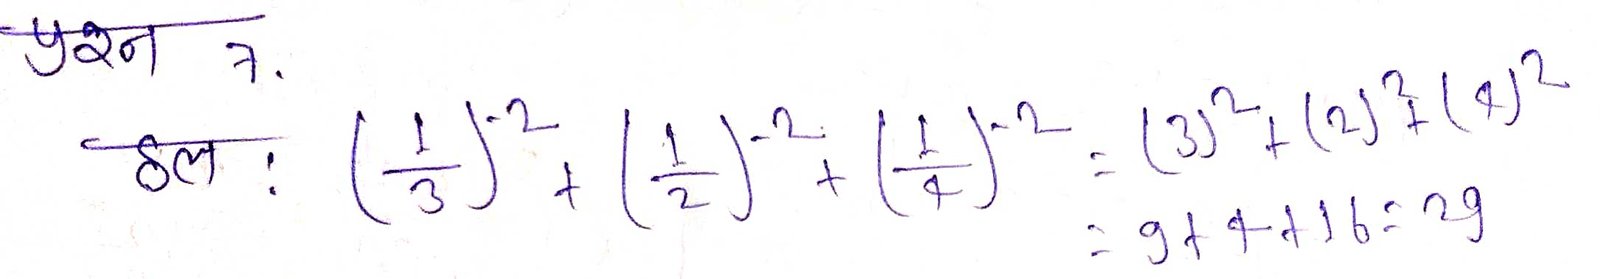 प्रश्न 7.
हल : (1/3)^-2 + (1/2)^-2 + (1/4)^-2 = (3)^2 + (2)^2 + (4)^2
= 9 + 4 + 16 = 29